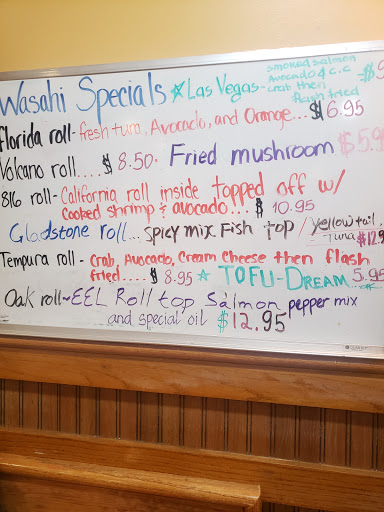 Wasahi Specials ☆ Las Vegas - smoked salmon
Avocado & C.C
crab then
flash fried
Florida roll - fresh tuna, Avocado, and Orange... $16.95
Volcano roll.... $8.50. Fried mushroom $5.9
816 roll - California roll inside topped off w/
cooked shrimp & avocado... $ 10.95
Gladstone roll... spicy mix Fish top / yellow tail
Tuna $12.9
Tempura roll - Crab, Avocado, Cream cheese then flash
fried.... $ 8.95 ☆ TOFU-DREAM 5.95
Oak roll ~ EEL Roll top Salmon pepper mix
and special oil $12.95